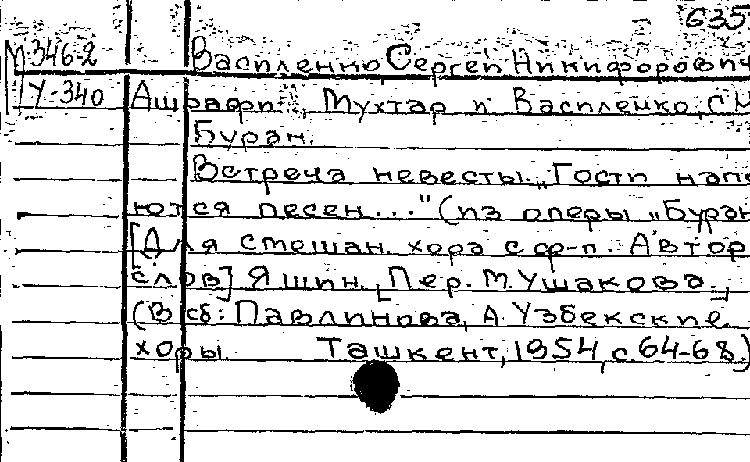 635
М-346-2 Василенко, Сергей Никифорович
У-340 Ашрафи, Мухтар и Василенко, С.Н
Буран.
Встреча невесты. „Гости напе
ются песен..." (из оперы „Буран
[Для смешан. хора с ф-п. Автор
слов] Яшин. [Пер. М. Ушакова.]
(В сб: Павлинова, А. Узбекские
хоры. Ташкент, 1954, с. 64-68.)